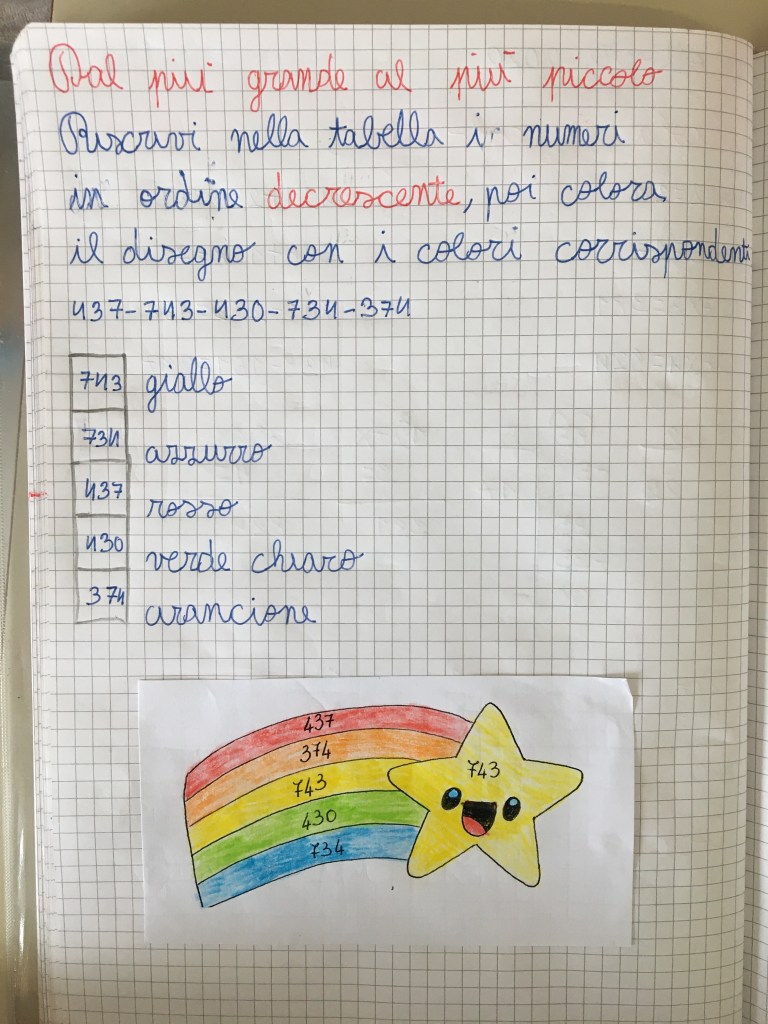 Dal più grande al più piccolo
Riscrivi nella tabella i numeri
in ordine decrescente, poi colora
il disegno con i colori corrispondenti
437-743-430-734-374
743 giallo
734 azzurro
437 rosso
430 verde chiaro
374 arancione
437
374
743
743
430
734